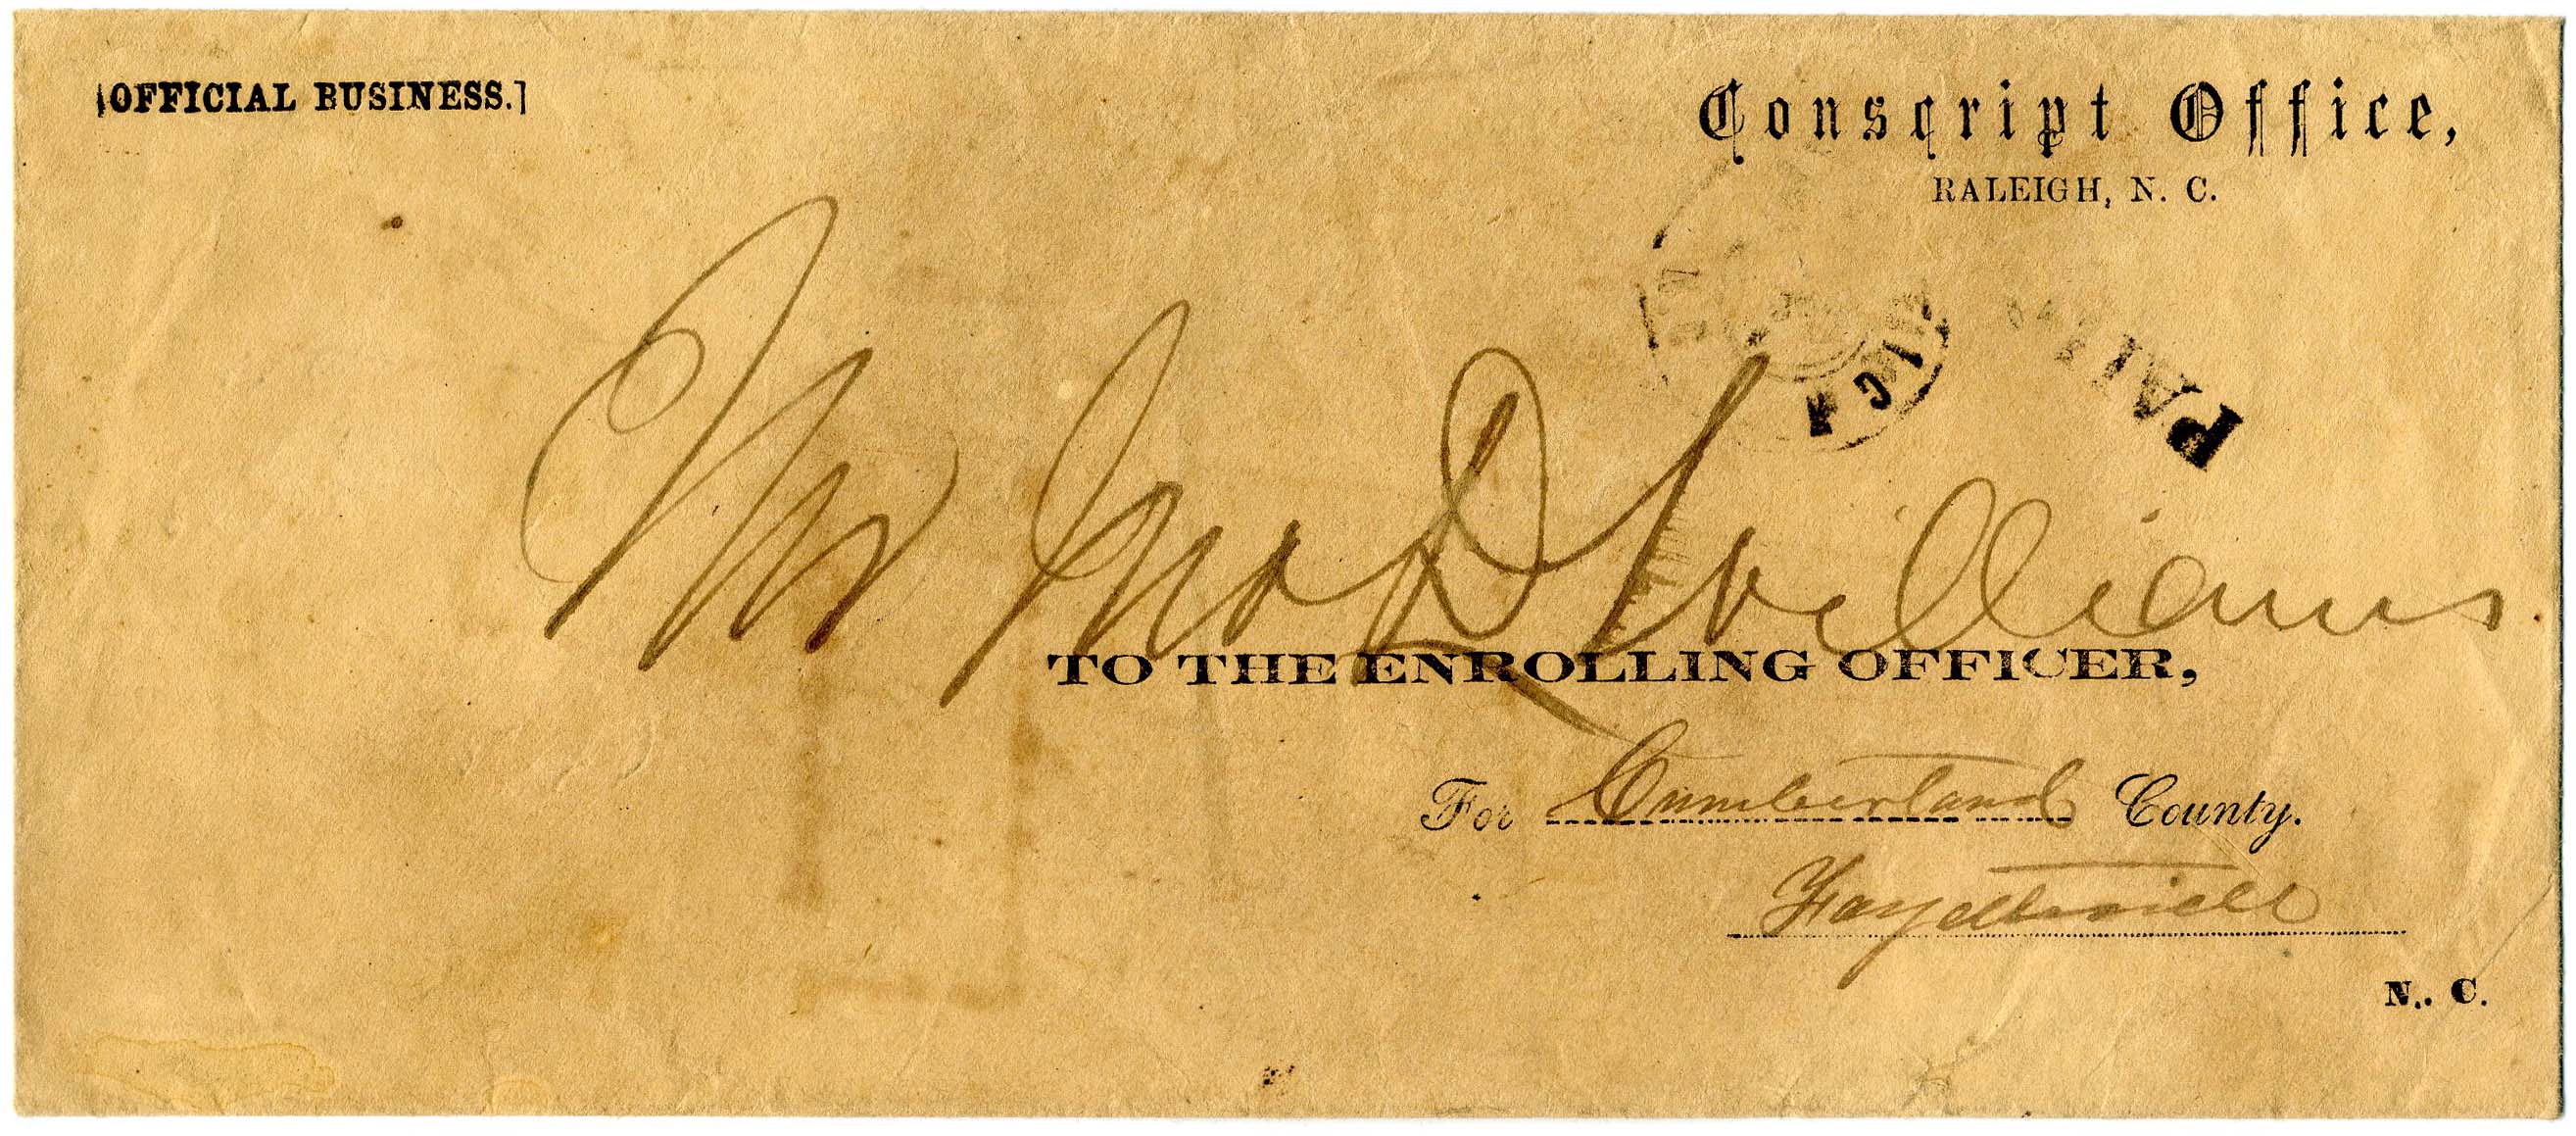 [OFFICIAL BUSINESS.]
Conscript Office,
RALEIGH, N. C.
PAI
Mr Jno D Williams
TO THE ENROLLING OFFICER,
For Cumberland County.
Fayetteville
N. C.